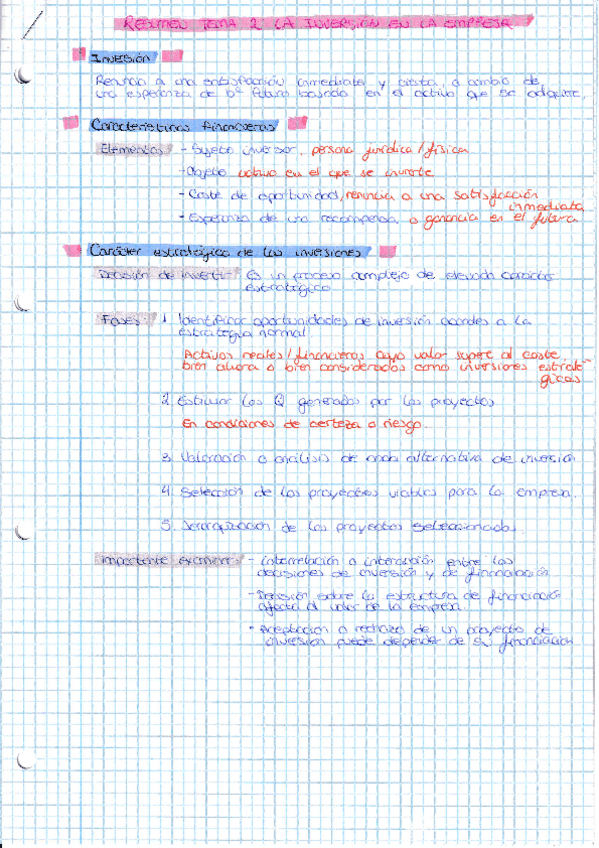 RESUMEN TEMA 2 LA INVERSIÓN EN LA EMPRESA
Inversión
Renuncia a una satisfacción inmediata y cierta, a cambio de
una esperanza de bº futuro basado en el activo que se adquiere.
Características financieras
Elementos - Sujeto inversor, persona jurídica / física
- Objeto activo en el que se invierte
- Coste de oportunidad, renuncia a una satisfacción
inmediata
- Esperanza de una recompensa o ganancia en el futuro
Carácter estratégico de las inversiones
Decisión de invertir Es un proceso complejo de elevado carácter
estratégico
Fases 1. Identificar oportunidades de inversión acordes a la
estrategia normal
Activos reales/financieros cuyo valor supere al coste,
bien ahora o bien considerados como inversiones estraté-
gicas
2. Estimar los Q generados por los proyectos
En condiciones de certeza o riesgo.
3. Valoración o análisis de cada alternativa de inversión
4. Selección de los proyectos viables para la empresa.
5. Jerarquización de los proyectos seleccionados
Importante examen: - interrelación o interacción entre las
decisiones de inversión y de financiación
- Decisión sobre la estructura de financiación
afecta al valor de la empresa.
- Aceptación o rechazo de un proyecto de
inversión puede depender de su financiación